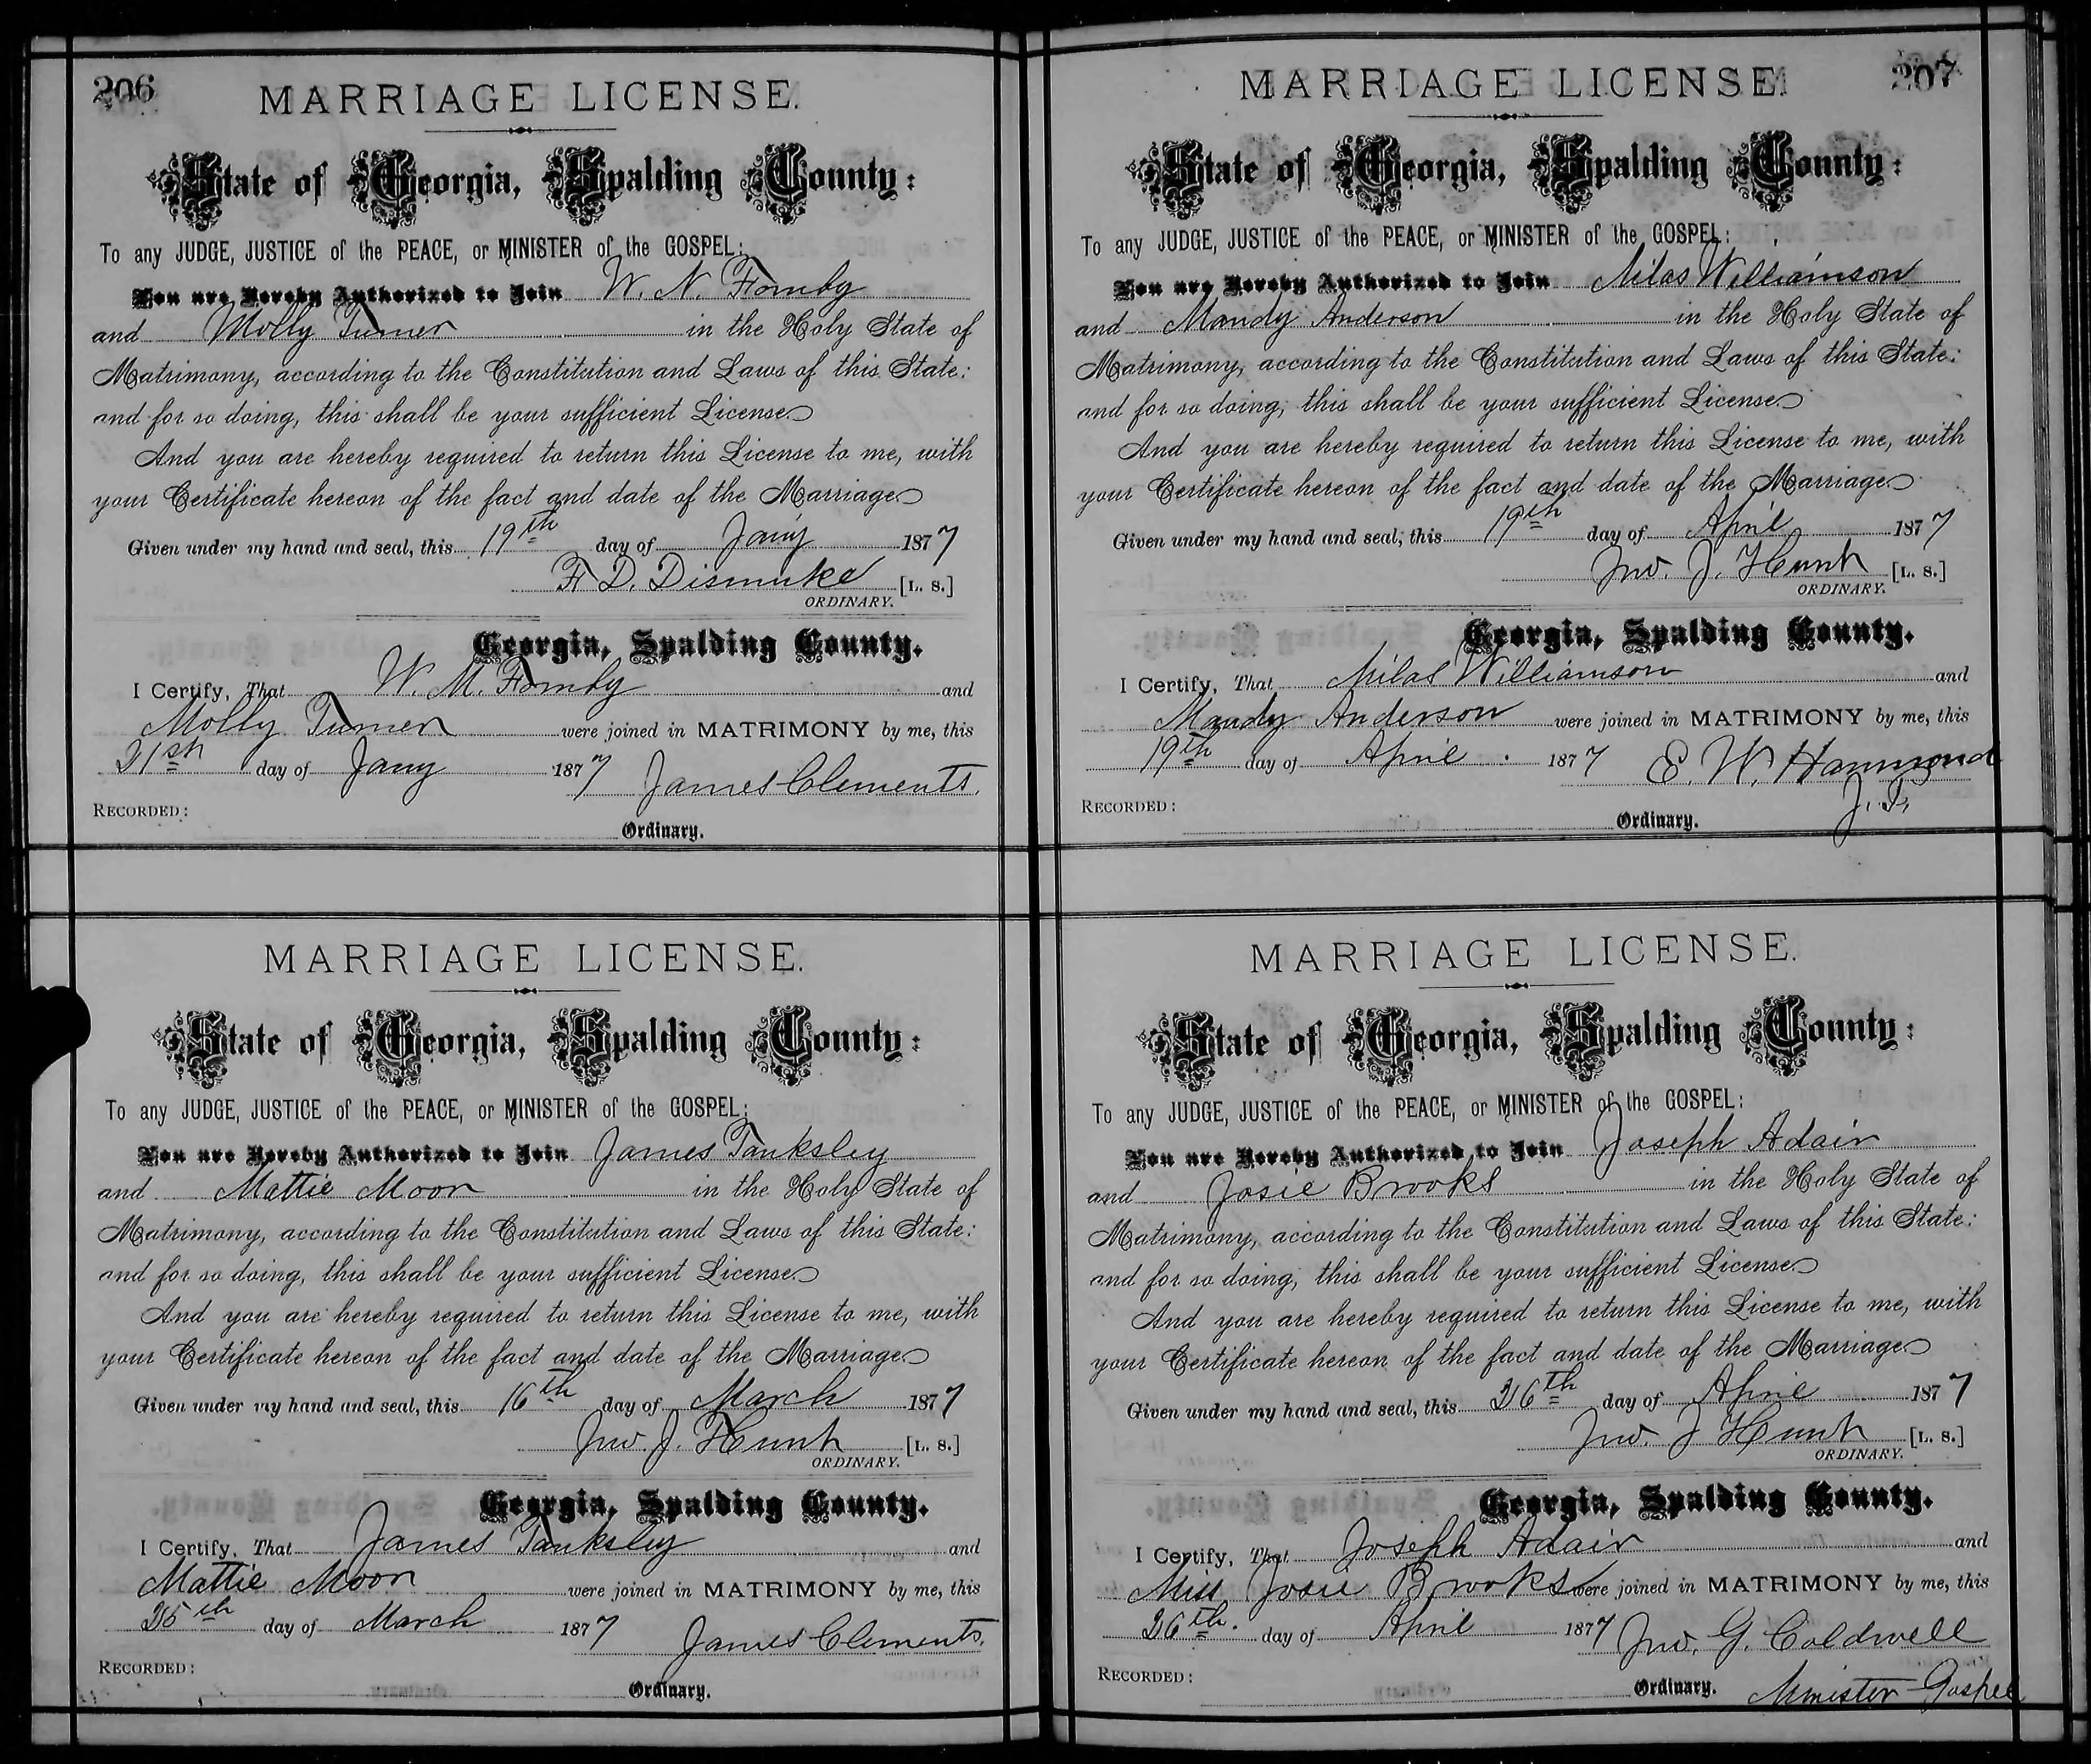 206
MARRIAGE LICENSE.
State of Georgia, Spalding County:
To any JUDGE, JUSTICE of the PEACE, or MINISTER of the GOSPEL:
You are Hereby Authorized to Join W. N. Fomby
and Molly Turner in the Holy State of
Matrimony, according to the Constitution and Laws of this State:
and for so doing, this shall be your sufficient License.
And you are hereby required to return this License to me, with
your Certificate hereon of the fact and date of the Marriage.
Given under my hand and seal, this 19th day of Jany 1877
F. D. Dismuke [L. S.]
ORDINARY.
Georgia, Spalding County.
I Certify, That W. M. Fomby and
Molly Turner were joined in MATRIMONY by me, this
21st day of Jany 1877 James Clements.
RECORDED:
Ordinary.
MARRIAGE LICENSE.
State of Georgia, Spalding County:
To any JUDGE, JUSTICE of the PEACE, or MINISTER of the GOSPEL:
You are Hereby Authorized to Join James Tanksley
and Mattie Moon in the Holy State of
Matrimony, according to the Constitution and Laws of this State:
and for so doing, this shall be your sufficient License.
And you are hereby required to return this License to me, with
your Certificate hereon of the fact and date of the Marriage.
Given under my hand and seal, this 16th day of March 1877
Jno. J. Hunt [L. S.]
ORDINARY.
Georgia, Spalding County.
I Certify, That James Tanksley and
Mattie Moon were joined in MATRIMONY by me, this
25th day of March 1877 James Clements.
RECORDED:
Ordinary.
207
MARRIAGE LICENSE.
State of Georgia, Spalding County:
To any JUDGE, JUSTICE of the PEACE, or MINISTER of the GOSPEL:
You are Hereby Authorized to Join Milas Williamson
and Mandy Anderson in the Holy State of
Matrimony, according to the Constitution and Laws of this State:
and for so doing, this shall be your sufficient License.
And you are hereby required to return this License to me, with
your Certificate hereon of the fact and date of the Marriage.
Given under my hand and seal, this 19th day of April 1877
Jno. J. Hunt [L. S.]
ORDINARY.
Georgia, Spalding County.
I Certify, That Milas Williamson and
Mandy Anderson were joined in MATRIMONY by me, this
19th day of April 1877 E. W. Hammond
J. P.
RECORDED:
Ordinary.
MARRIAGE LICENSE.
State of Georgia, Spalding County:
To any JUDGE, JUSTICE of the PEACE, or MINISTER of the GOSPEL:
You are Hereby Authorized to Join Joseph Adair
and Josie Brooks in the Holy State of
Matrimony, according to the Constitution and Laws of this State:
and for so doing, this shall be your sufficient License.
And you are hereby required to return this License to me, with
your Certificate hereon of the fact and date of the Marriage.
Given under my hand and seal, this 26th day of April 1877
Jno. J Hunt [L. S.]
ORDINARY.
Georgia, Spalding County.
I Certify, That Joseph Adair and
Miss Josie Brooks were joined in MATRIMONY by me, this
26th. day of April 1877 Jno. G. Caldwell
RECORDED:
Ordinary. Minister Gospel